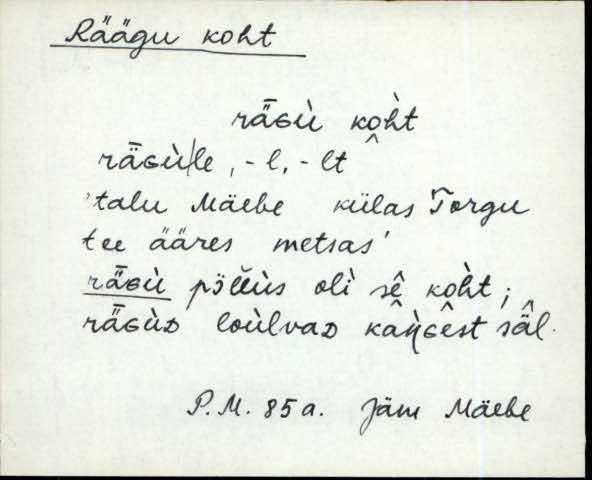 Räägu koht
rǟɢù ko̭h̀t
rǟɢù|le, -l, -lt
'talu Mäebe külas Torgu
tee ääres metsas'
rǟɢù põĭĭùs olì sê̬ koh̀t;
rǟɢùᴅ loùlvaᴅ kâŋ̀ɢêst sä̂l.
P.M. 85a. Jäm Mäebe